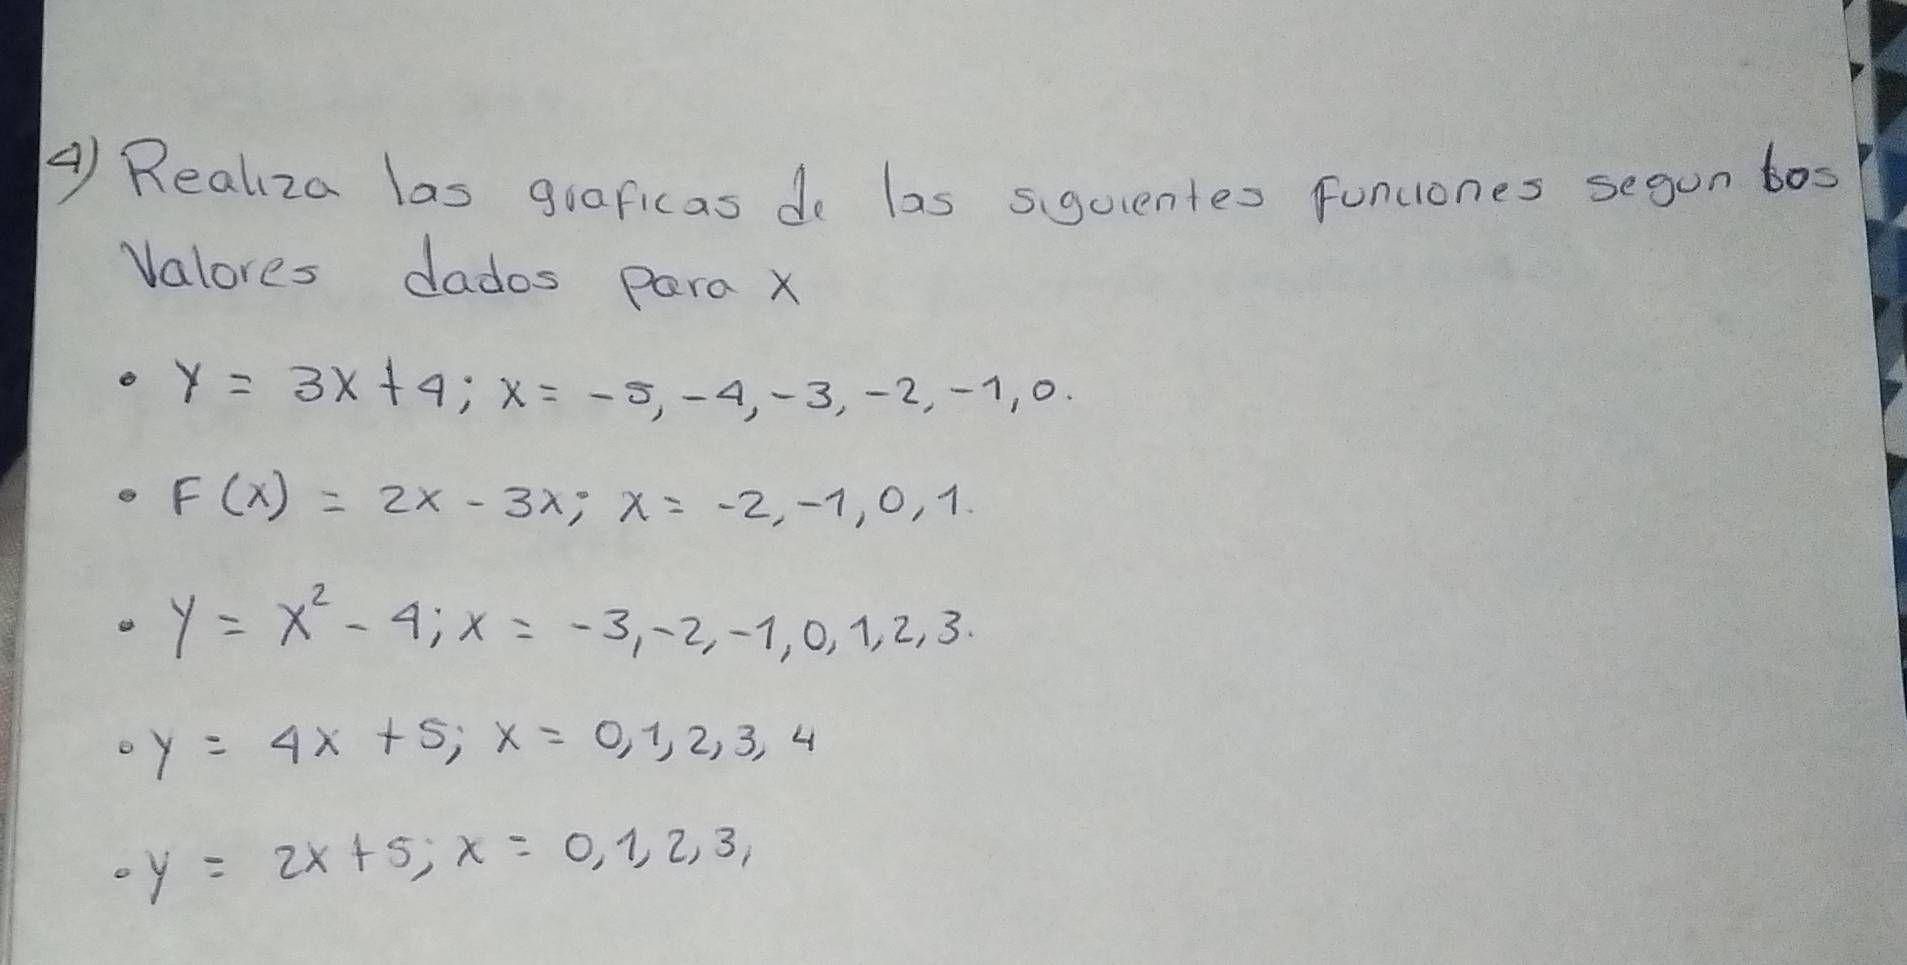 4) Realiza las graficas de las siguientes funciones segun los
Valores dados para x
• Y = 3x + 4; x = -5, -4, -3, -2, -1, 0.
• F(x) = 2x - 3x; x = -2, -1, 0, 1.
• Y = x² - 4; x = -3, -2, -1, 0, 1, 2, 3.
• y = 4x + 5; x = 0, 1, 2, 3, 4
• y = 2x + 5; x = 0, 1, 2, 3,